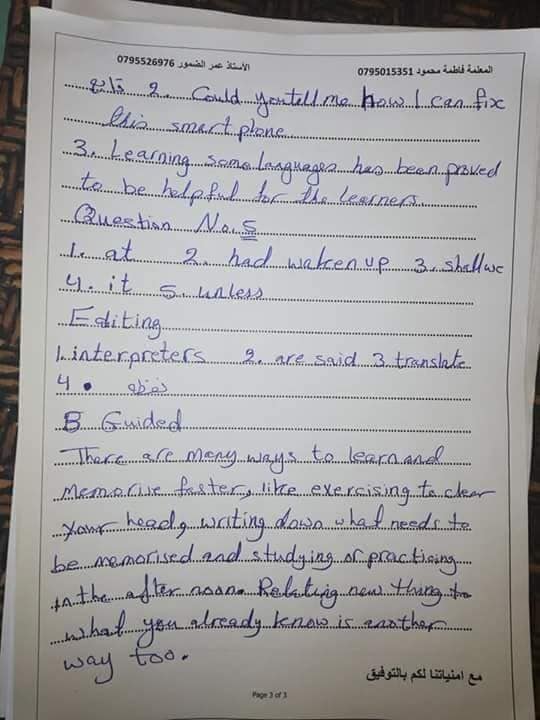 المعلمة فاطمة محمود 0795015351 الأستاذ عمر الضمور 0795526976
تابع 2. Could you tell me how I can fix
this smart phone
3. Learning some languages has been proved
to be helpful for the learners.
Question No. 5
1. at 2. had waken up 3. shall we
4. it 5. unless
Editing
1. interpreters 2. are said 3. translate
4 •
B Guided
There are many ways to learn and
memorise faster, like exercising to clear
your head, writing down what needs to
be memorised and studying or practicing
in the after noon. Relating new thing to
what you already know is another
way too.
مع امنياتنا لكم بالتوفيق
Page 3 of 3